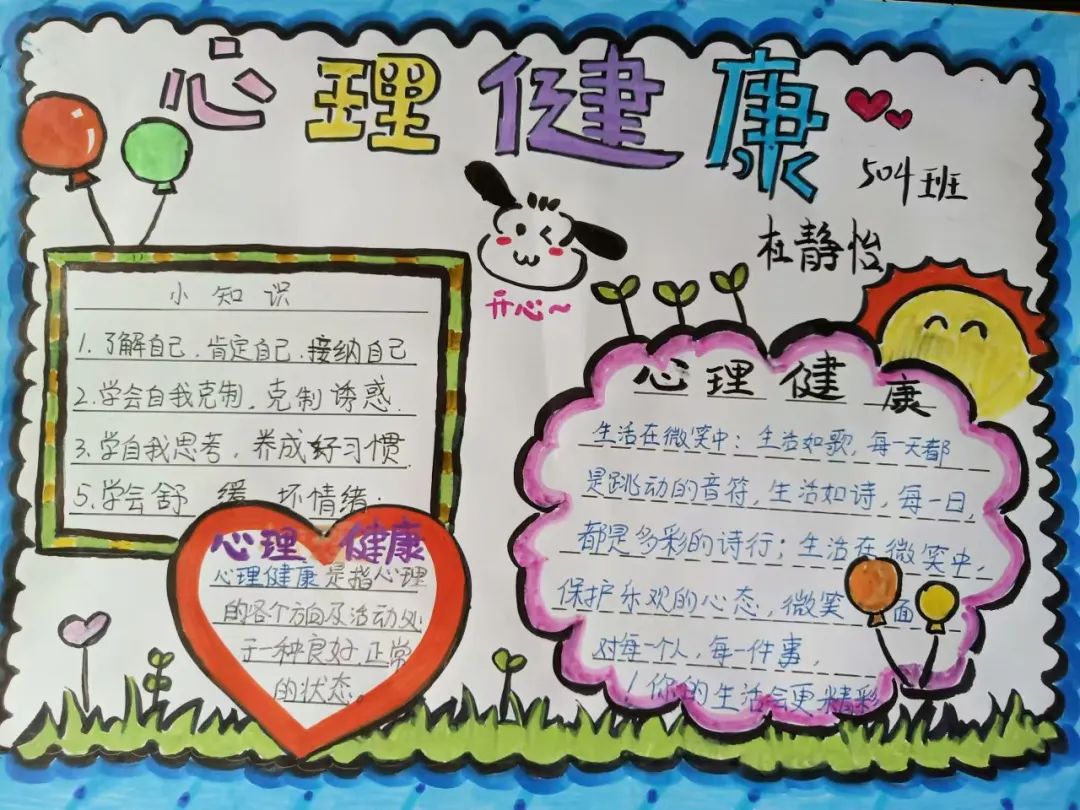 心理健康
504班
杜静怡
开心~
小知识
1.了解自己.肯定自己.接纳自己
2.学会自我克制.克制诱惑.
3.学自我思考,养成好习惯.
5.学会舒缓坏情绪.
心理健康
心理健康是指心理
的各个方面及活动处
于一种良好.正常
的状态。
心理健康
生活在微笑中:生活如歌,每一天都
是跳动的音符,生活如诗,每一日,
都是多彩的诗行;生活在微笑中,
保护乐观的心态,微笑面
对每一个人,每一件事,
!你的生活会更精彩